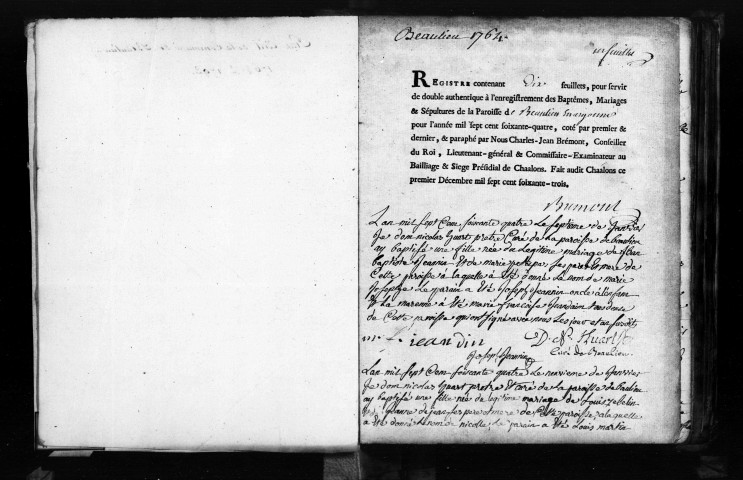 Beaulieu 1764.
1er feuillet
REGISTRE contenant Dix feuillets, pour servir
de double authentique à l'enregistrement des Baptêmes, Mariages
& Sépultures de la Paroisse de Beaulieu en argonne
pour l'année mil sept cent soixante-quatre, coté par premier &
dernier, & paraphé par Nous Charles-Jean Brémont, Conseiller
du Roi, Lieutenant-général & Commissaire-Examinateur au
Bailliage & Siege Présidial de Chaalons. Fait audit Chaalons ce
premier Décembre mil sept cent soixante-trois.
Bremont
Lan mil sept Cent soixante quatre Le septieme de Janvier
Je dom nicolas huart pretre Curé de La paroisse de beaulieu
ay baptisé une fille née de Legitime mariage de Jean
baptiste Jeannin Et de marie ses pere et mere de
Cette paroisse a laquelle a été donné Le nom de marie
Josephe Le parain a été Joseph Jeannin oncle à l'enfant
Et La mareine a été marie francoise
de Cette paroisse qui ont signé avec nous Les jour et an susdits
jeandin D. N. Huart
Joseph Jeannin Curé de Beaulieu
Lan mil sept Cent soixante quatre Le neuvieme de Janvier
Je dom nicolas huart pretre et Curé de la paroisse de beaulieu
ay baptisé une fille née de legitime mariage de Louis
et de jeanne ses pere et mere de Cette paroisse a laquelle
a été donné Le nom de nicolle, Le parain a été Louis martin